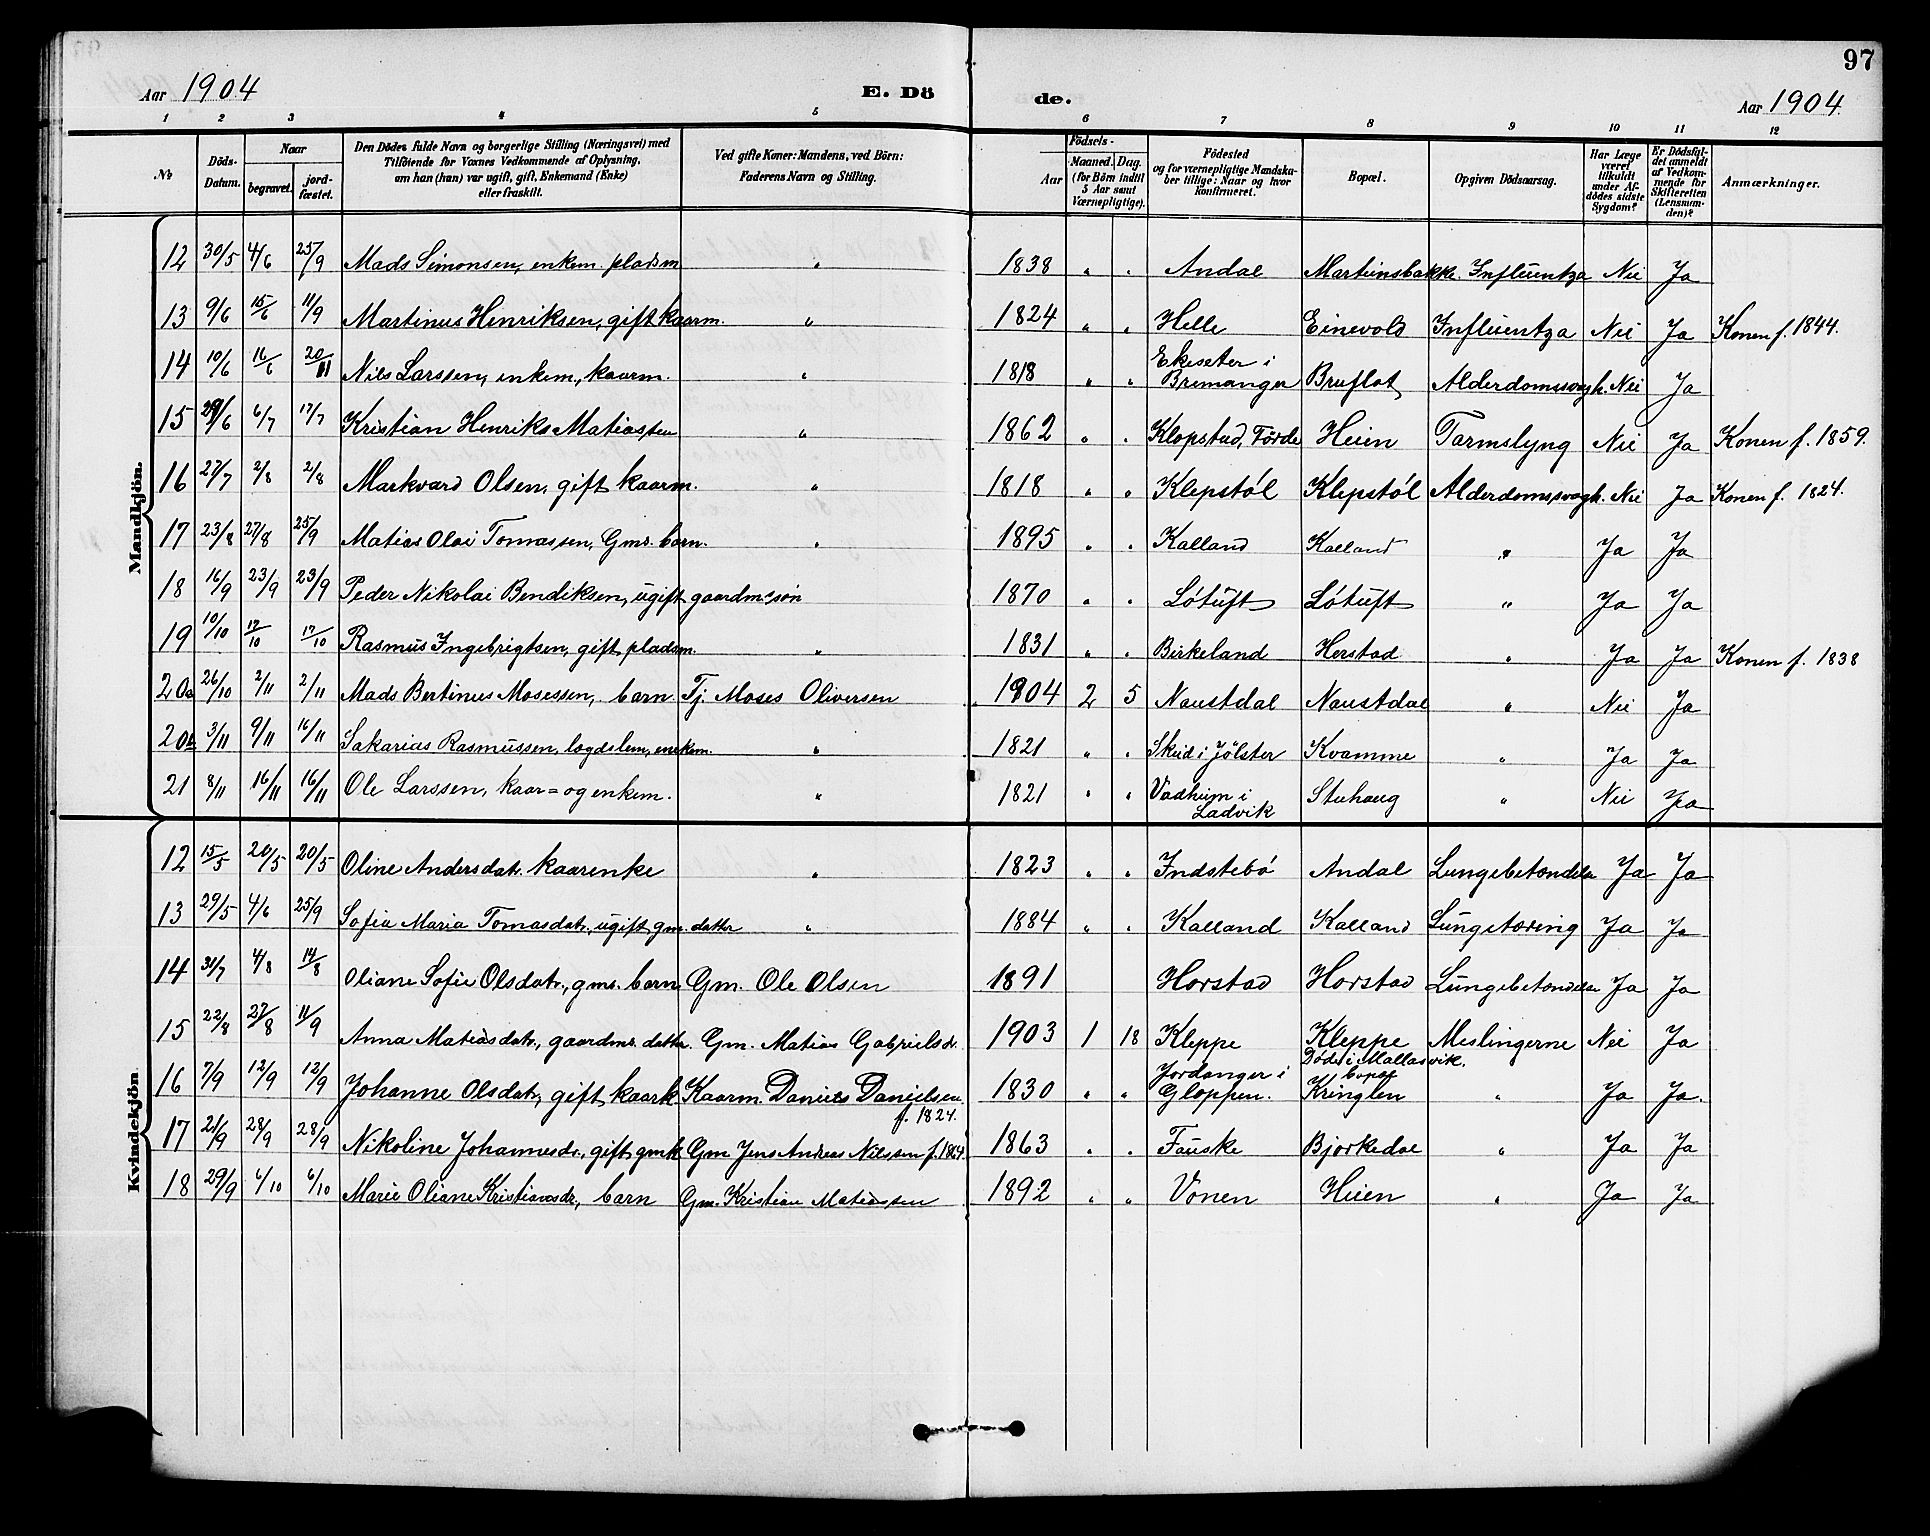 97
Aar 1904 E. Dö de. Aar 1904.
1 2 3 4 5 6 7 8 9 10 11 12
№ Döds-Datum. Naar begravet. jord-fæstet. Den Dödes fulde Navn og borgerlige Stilling (Næringsvei) med Tilföiende for Voxnes Vedkommende af Oplysning, om han (hun) var ugift, gift, Enkemand (Enke) eller fraskilt. Ved gifte Koner: Mandens, ved Börn: Faderens Navn og Stilling. Födsels- Aar Maaned. Dag. (for Börn indtil 5 Aar samt Værnepligtige). Födested og for værnepligtige Mandskaber tillige: Naar og hvor konfirmeret. Bopæl. Opgiven Dödsaarsag. Har Læge været tilkaldt under Afdödes sidste Sygdom? Er Dödsfaldet anmeldt af Vedkommende for Skifteretten (Lensmanden)? Anmærkninger.
Mandkjön.
12 30/5 4/6 25/9 Mads Simonsen, enkem. pladsm. " 1838 " " Andal Martinsbakke. Influentza Nei Ja
13 9/6 15/6 11/9 Martinus Henriksen, gift kaarm. " 1824 " " Helle Einevold Influentza Nei Ja Konen f. 1844.
14 10/6 16/6 20/11 Nils Larssen, enkem., kaarm. " 1818 " " Ekeseter i Bremanger Bruflot Alderdomssvagh. Nei Ja
15 29/6 6/7 17/7 Kristian Henriks Matiassen " 1862 " " Klopstad, Förde Heien Tarmslyng Nei Ja Konen f. 1859.
16 27/7 2/8 2/8 Markvard Olsen, gift kaarm. " 1818 " " Klepstøl Klepstøl Alderdomssvagh. Nei Ja Konen f. 1824.
17 23/8 27/8 25/9 Matias Olai Tomassen, Gms. barn. " 1895 " " Kalland Kalland " Ja Ja
18 16/9 23/9 23/9 Peder Nikolai Bendiksen, ugift gaardm. søn 1870 " " Løtuft Løtuft " Ja Ja
19 10/10 17/10 17/10 Rasmus Ingebrigtsen, gift pladsm. " 1831 " " Birkeland Herstad " Ja Ja Konen f. 1838
20a 26/10 2/11 2/11 Mads Bertinus Mosessen, barn Tj. Moses Oliversen 1904 2 5 Naustdal Naustdal " Nei Ja
20b 3/11 9/11 16/11 Sakarias Rasmussen, lægdslem, enkem. " 1821 " " Skeid i Jølster Kvamme " Ja Ja
21 8/11 16/11 16/11 Ole Larssen, kaar= og enkem. " 1821 " " Vadheim i Ladvik Stuhaug " Nei Ja
Kvindekjön
12 15/5 20/5 20/5 Oline Andersdatr. kaarenke " 1823 " " Indstebø Andal Lungebetændelse Ja Ja
13 29/5 4/6 25/9 Sofia Maria Tomasdatr., ugift gm. datter " 1884 " " Kalland Kalland Lungetæring Ja Ja
14 31/7 4/8 14/8 Oliane Sofie Olsdatr., gms. barn Gm. Ole Olsen 1891 Horstad Horstad Lungebetændelse Ja Ja
15 22/8 27/8 11/9 Anna Matiasdatr., gaardms. datter Gm. Matias Gabrielsen 1903 1 18 Kleppe Kleppe Meslingerne Nei Ja
16 7/9 12/9 12/9 Johanne Olsdatr, gift kaark. Kaarm. Daniels Danielsen f. 1824. 1830 " " Jordanger i Gloppen. Døde i Mallasvik. bopæl Kringlen " Ja Ja.
17 21/9 28/9 28/9 Nikoline Johannesdr., gift gmk. Gm Jens Andreas Nilssen f. 1864 1863 " " Fauske Bjorkedal " Ja Ja
18 29/9 6/10 6/10 Marie Oliane Kristiansdr., barn Gm. Kristian Matiassen 1892 " " Vonen Heien " Ja Ja